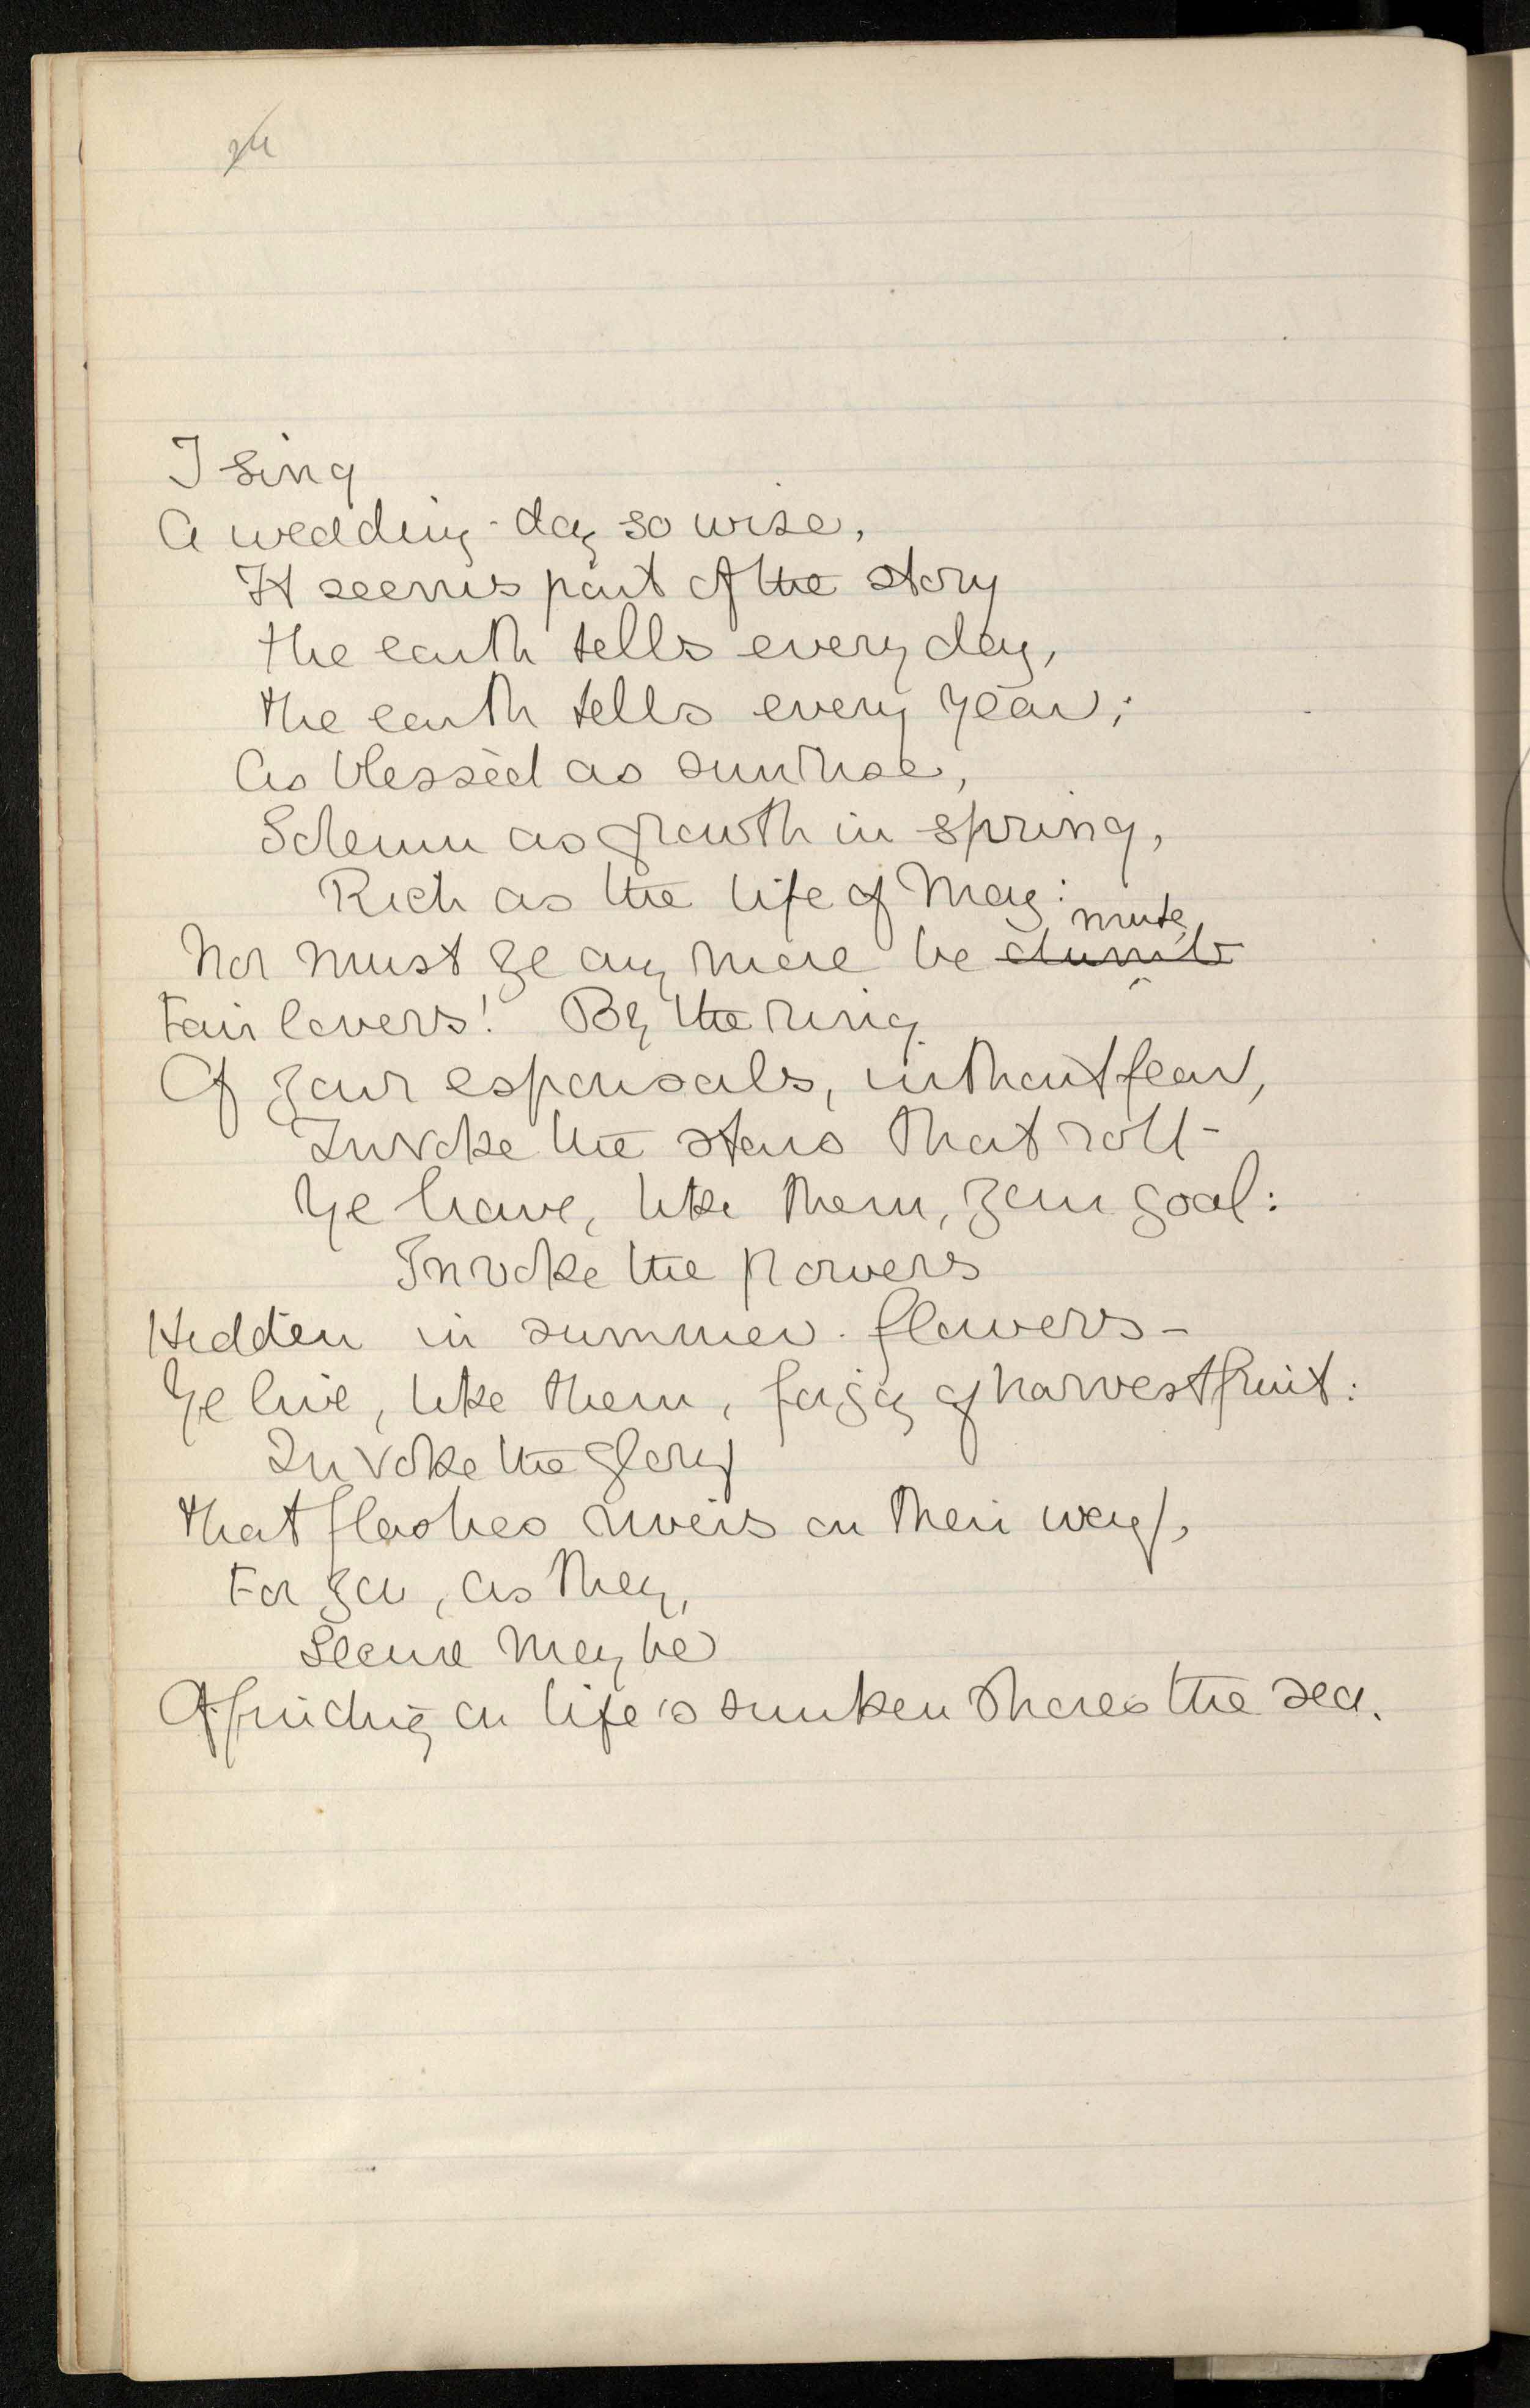 I sing
A wedding-day so wise,
It seems part of the story
the earth tells every day,
the earth tells every year;
As blessèd as sunrise,
Solemn as growth in spring,
Rich as the life of May:
mute,
Nor must ye any more be dumb
Fair lovers! By the ring
Of your espousals, without fear,
Invoke the stars that roll -
Ye have, like them, your goal:
Invoke the powers
Hidden in summer-flowers -
Ye live, like them, for joy of harvest fruit:
Invoke the glory
that flashes rivers on their way,
For you, as they,
Secure may be
Of finding on life's sunken shores the sea.